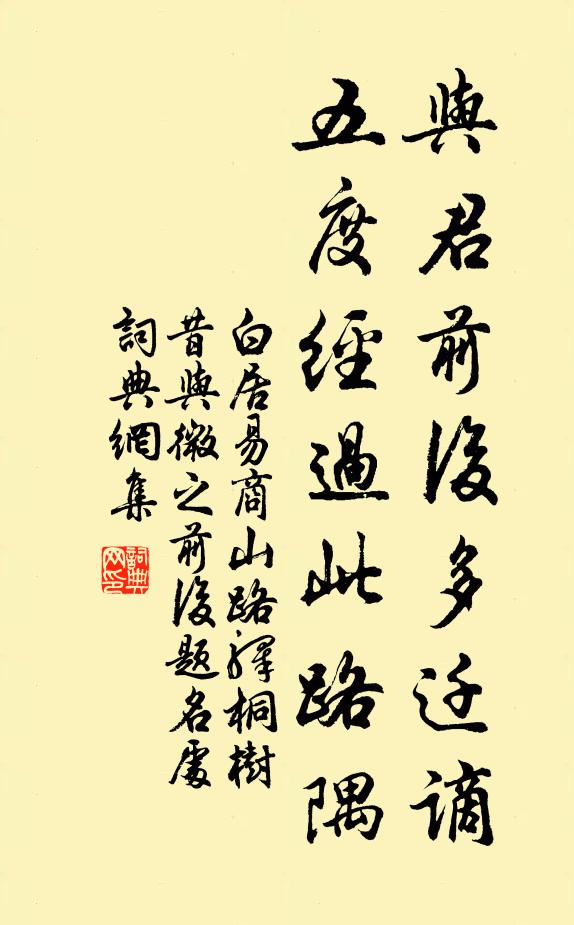 與君前後多迁謫
五度經過此路隅
白居易商山路驛桐樹
昔與微之前後題名處
詞典網集
詞典网印